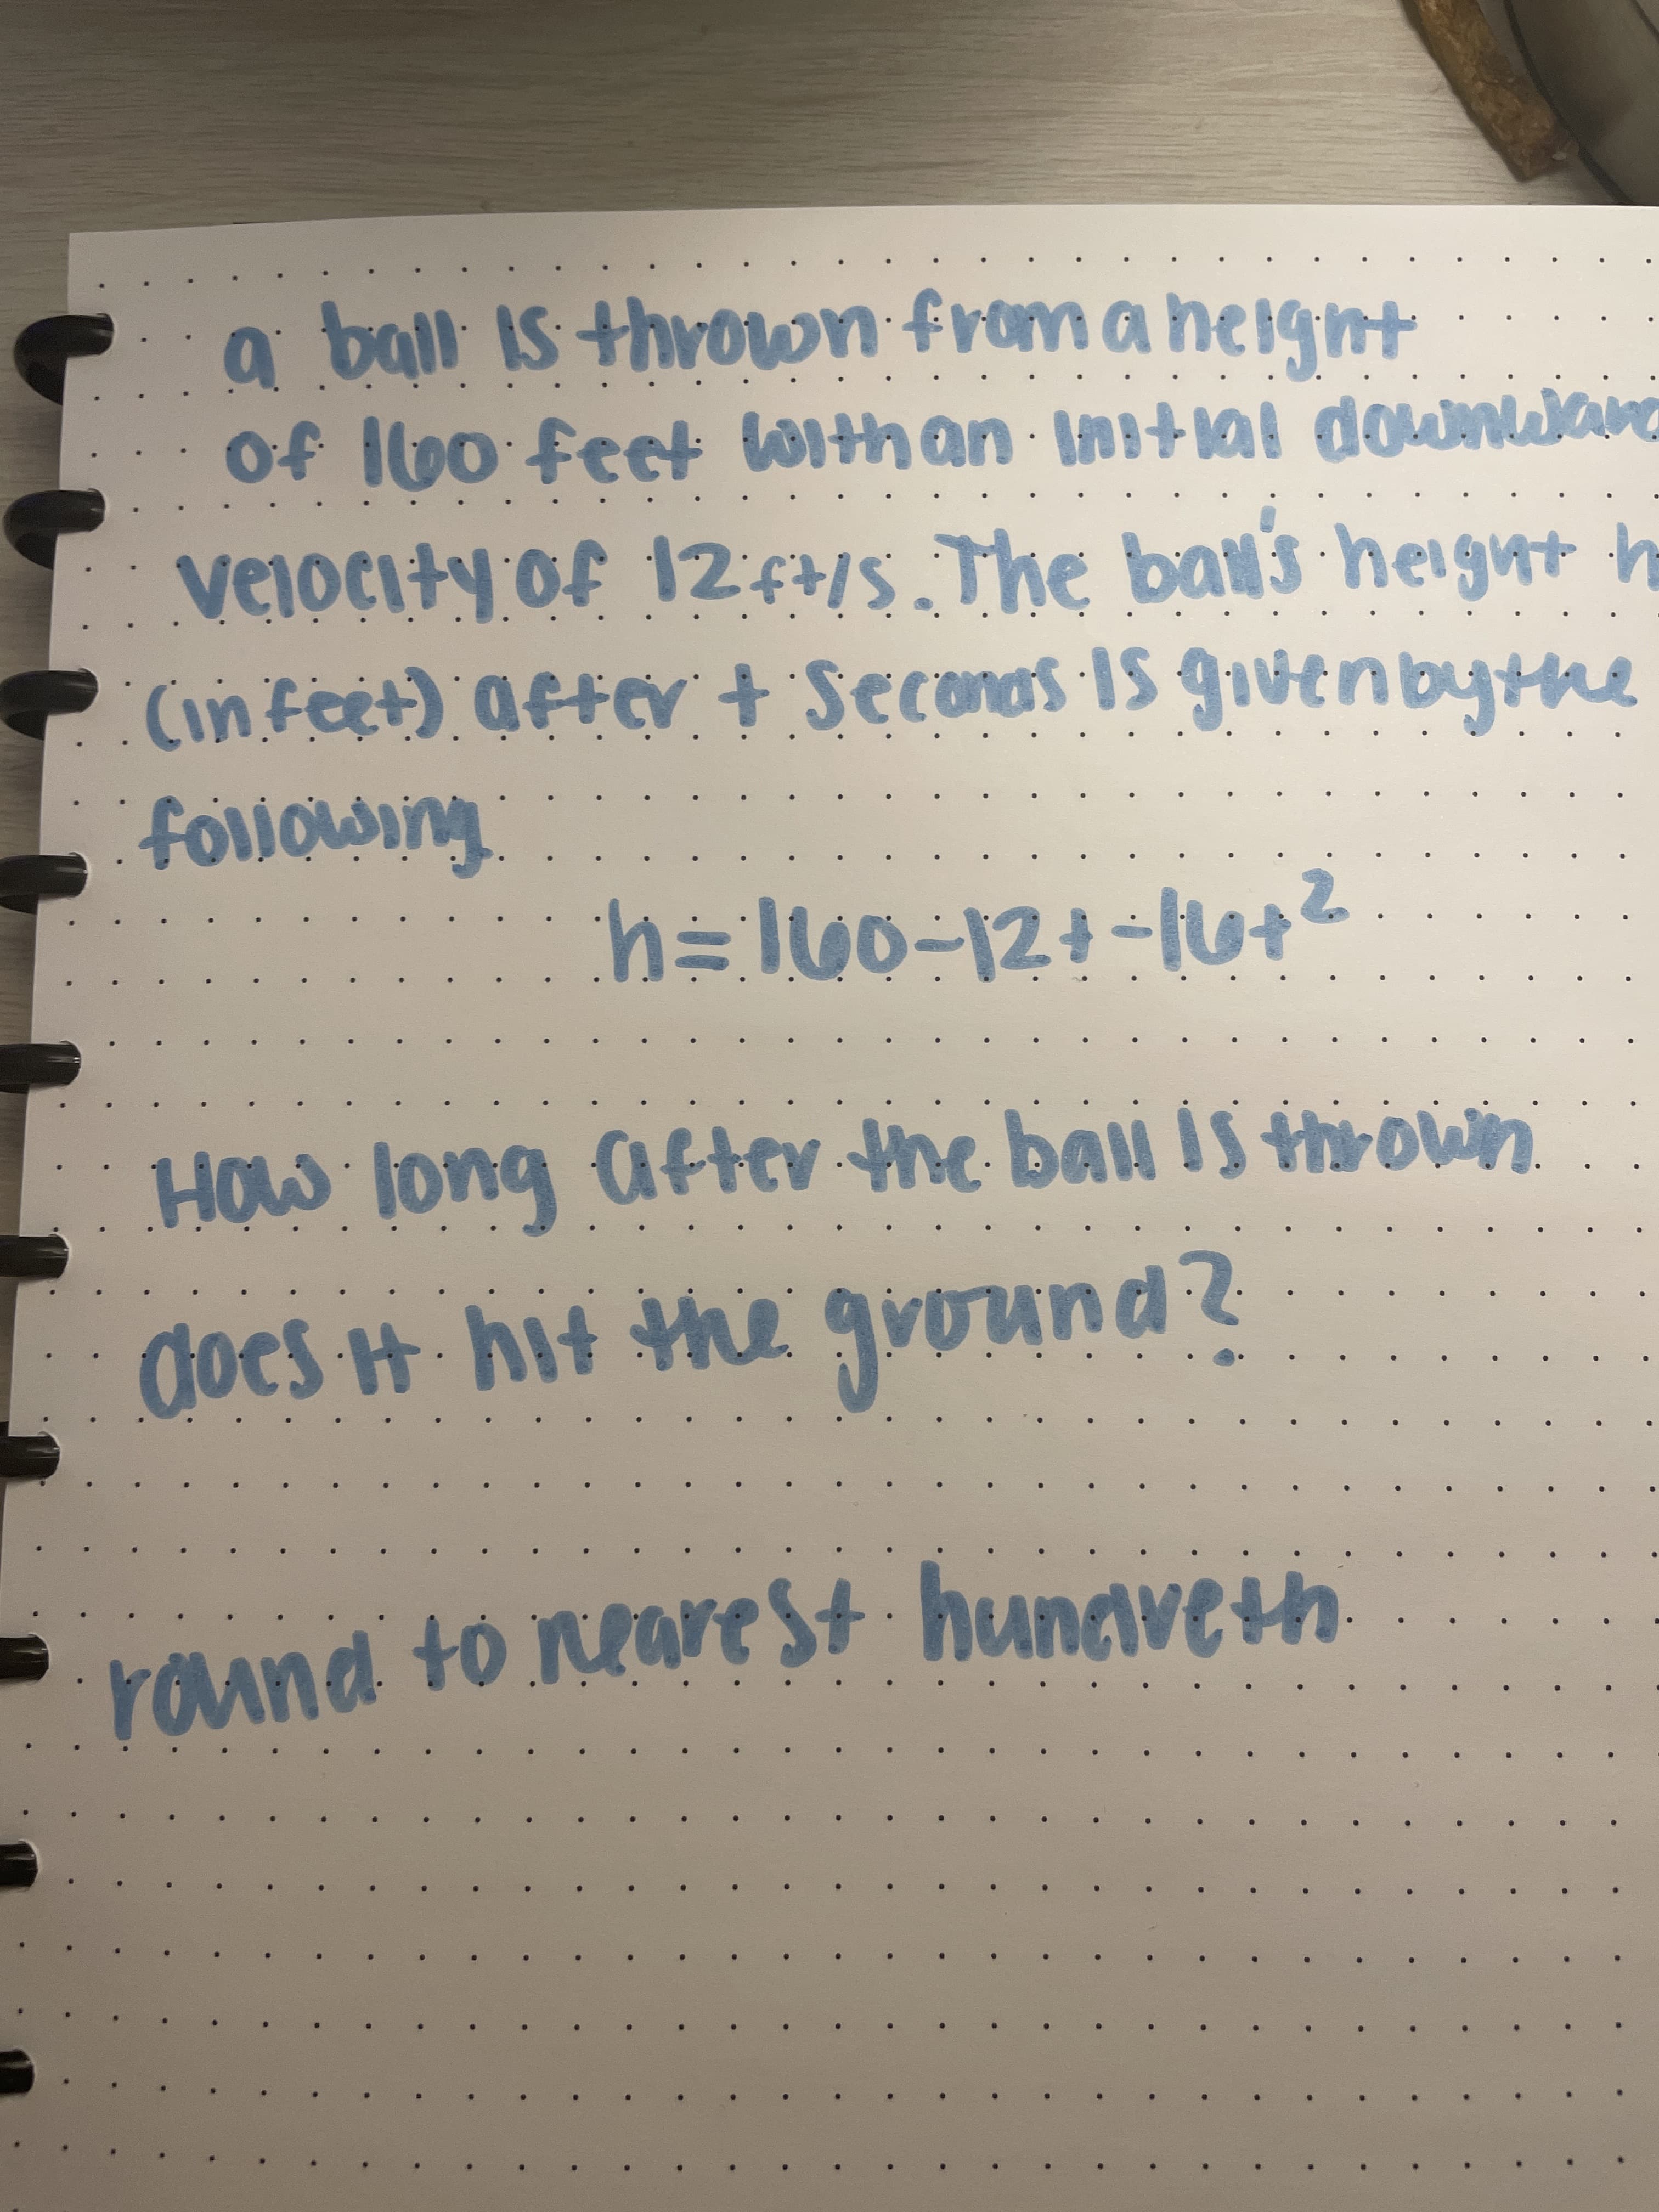 a ball is thrown from a height
of 160 feet with an initial downward
velocity of 12 ft/s. The ball's height h
(in feet) after t seconds is given by the
following
h=160-12t-16t²
How long after the ball is thrown
does it hit the ground?
round to nearest hundreth